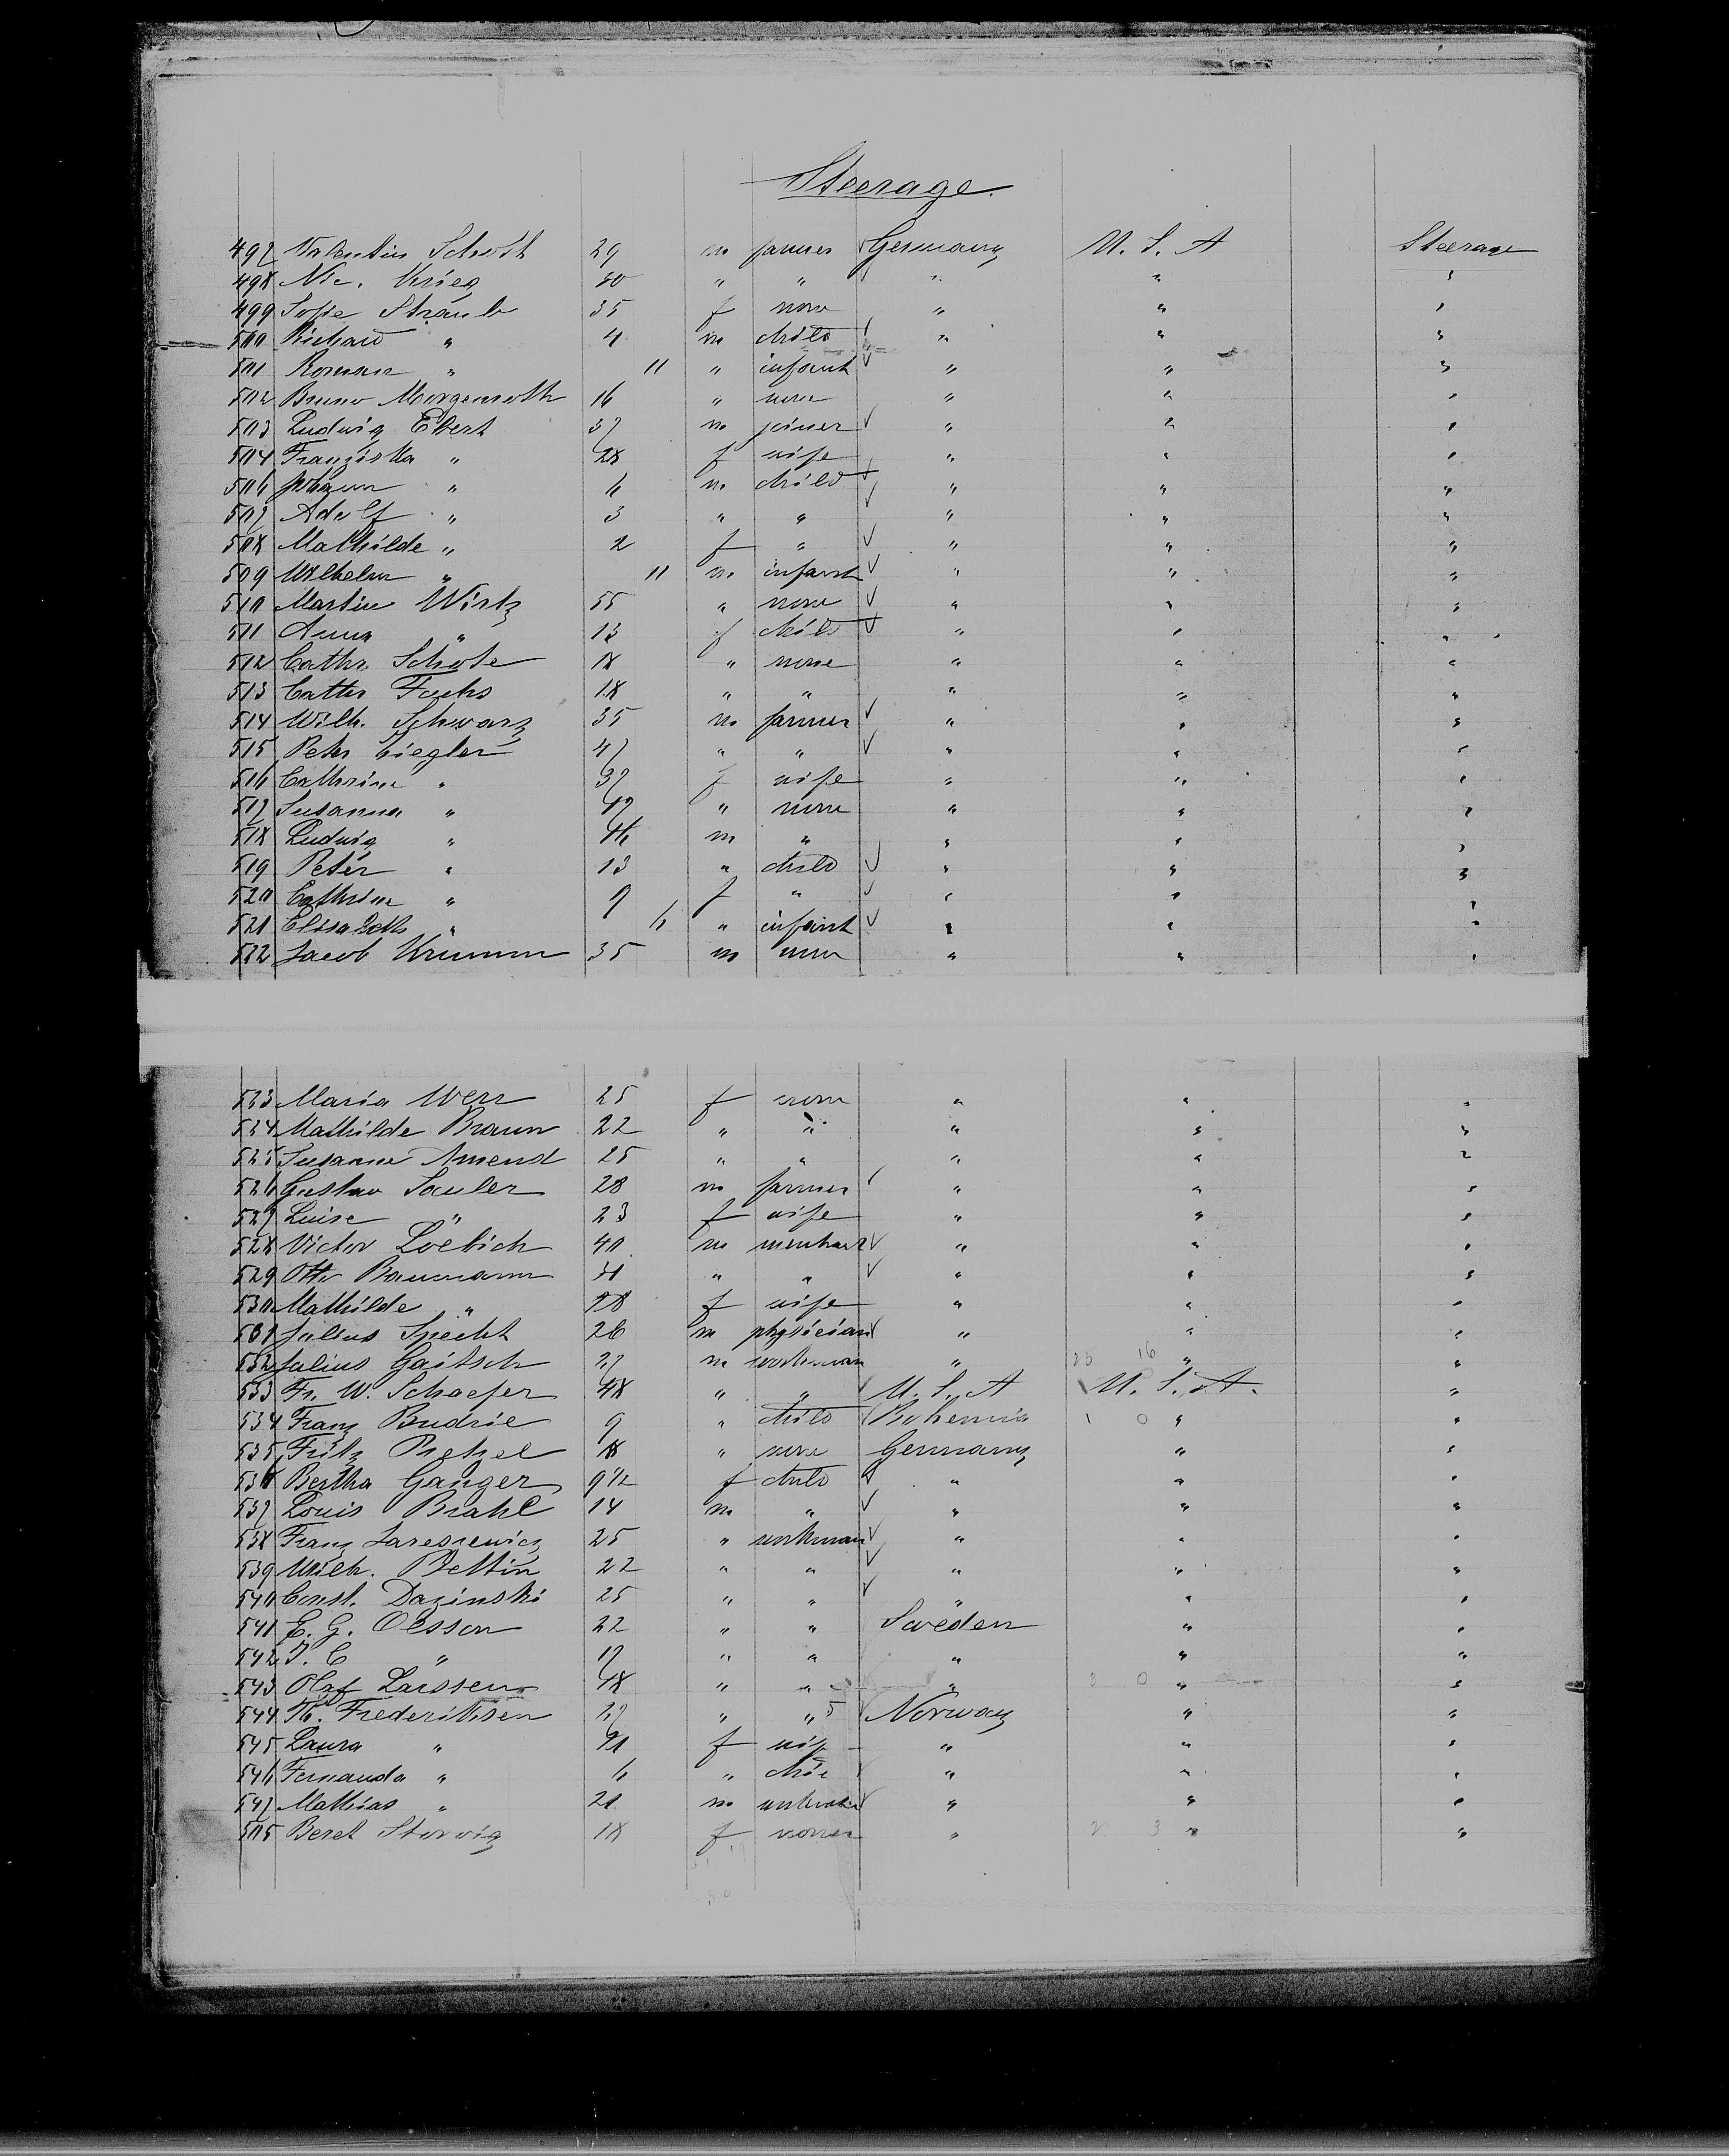 Steerage.
497 Valentin Schott 29 m farmer Germany U. S. A Steerage
498 Nic. Krieg 30 " " " " "
499 Sofie Straub 35 f none " " "
500 Richard " 4 m child " " "
501 Roman " 11 " infant " " "
502 Bruno Morgenroth 16 " none " " "
503 Ludwig Ebert 37 m joiner " " "
504 Franziska " 28 f wife " " "
506 Johann " 6 m child " " "
507 Adolf " 3 " " " " "
508 Mathilde " 2 f " " " "
509 Wilhelm " 11 m infant " " "
510 Martin Wirtz 55 " none " " "
511 Anna " 13 f child " " "
512 Cathr. Schote 18 " none " " "
513 Cathr Fuchs 18 " " " " "
514 Wilh. Schwarz 35 m farmer " " "
515 Peter Ziegler 47 " " " " "
516 Cathrine " 37 f wife " " "
517 Susanna " 17 " none " " "
518 Ludwig " 16 m " " " "
519 Peter " 13 " child " " "
520 Cathrine " 9 f " " " "
521 Elisabeth " 6 " infant " " "
522 Jacob Krumm 35 m none " " "
523 Maria Werr 25 f none " " "
524 Mathilde Braun 22 " " " " "
525 Susanne Amend 25 " " " " "
526 Gustav Sauler 28 m farmer " " "
527 Luise " 23 f wife " " "
528 Victor Loebich 40 m merchant " " "
529 Otto Baumann 31 " " " " "
530 Mathilde " 28 f wife " " "
531 Julius Specht 26 m physician " " "
532 Julius Gaitsch 27 m workman " 23 16 " "
533 Fr. W. Schaefer 48 " " U. S. A U. S. A. "
534 Franz Budsic 9 " child Bohemia 1 0 " "
535 Fritz Pretzel 18 " none Germany " "
536 Bertha Ganger 9 1/2 f child " " "
537 Louis Brahl 14 m " " " "
538 Franz 25 " workman " " "
539 Wilh. Bettin 22 " " " " "
540 Const. Dazinski 25 " " " " "
541 E. G. Olsson 22 " " Sweden " "
542 J. C " 17 " " " " "
543 Olaf Larssen 18 " " " 3 0 " "
544 Th. Frederiksen 27 " " 5 Norway " "
545 Laura " 21 f wife " " "
546 Fernanda " 6 " " " "
547 Mathias " 21 m workman " " "
505 Beret Storvig 18 f none " 2 3 " "